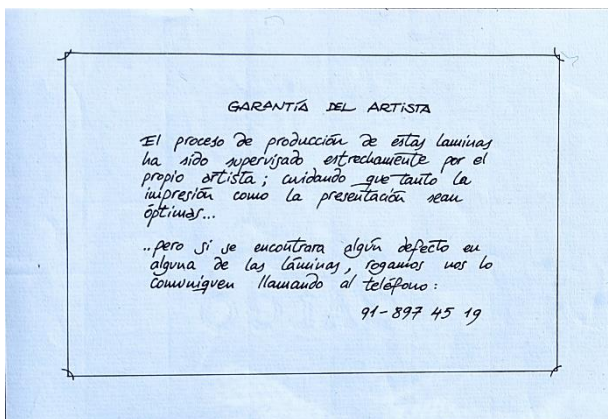 GARANTÍA DEL ARTISTA
El proceso de producción de estas laminas
ha sido supervisado estrechamente por el
propio artista; cuidando que tanto la
impresión como la presentación sean
óptimas...
..pero si se encontrara algún defecto en
alguna de las láminas, rogamos nos lo
comuniquen llamando al teléfono:
91-897 45 19